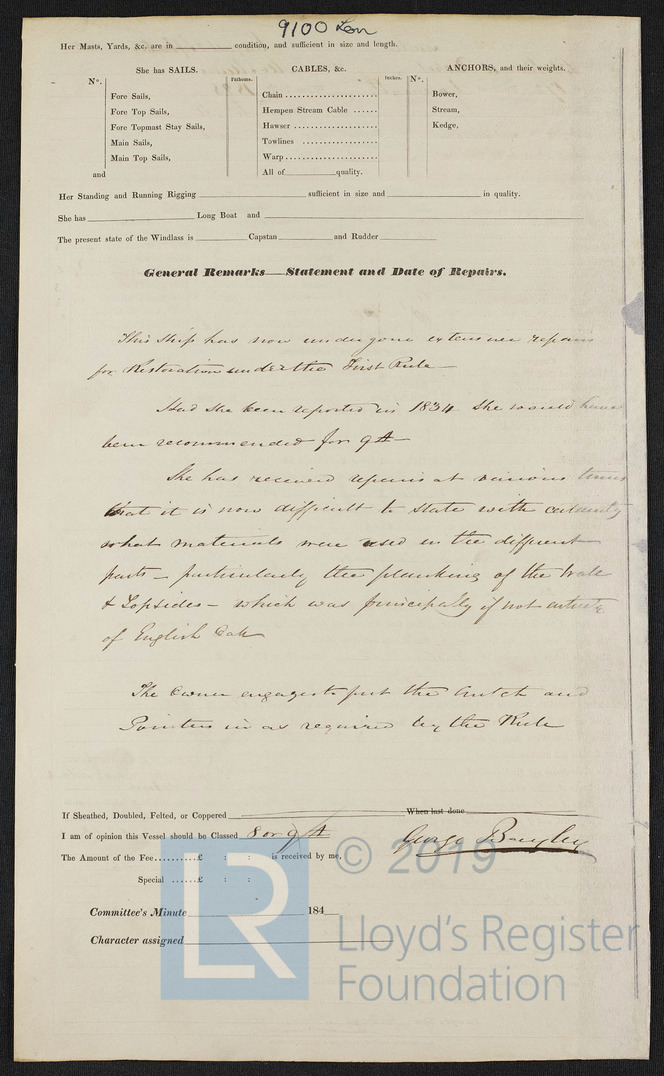 9100 Lon
Her Masts, Yards, &c. are in condition, and sufficient in size and length.
She has SAILS.
CABLES, &c.
ANCHORS, and their weights.
N°.
Fathoms.
Inches.
N°.
Fore Sails,
Chain
Bower,
Fore Top Sails,
Hempen Stream Cable
Stream,
Fore Topmast Stay Sails,
Hawser
Kedge,
Main Sails,
Towlines
Main Top Sails,
Warp
and
All of quality.
Her Standing and Running Rigging sufficient in size and in quality.
She has Long Boat and
The present state of the Windlass is Capstan and Rudder
General Remarks—Statement and Date of Repairs.
This Ship has now undergone extensive repairs
for Restoration under the First Rule —
Had she been reported in 1834 She would have
been recommended for 9 A —
She has received repairs at various times
that it is now difficult to state with certainty
what materials were used in the different
parts — particularly the planking of the Wale
& Topsides — which was principally if not entirely
of English Oak
The Owner engages to put the Crutch and
Pointers in as required by the Rule
If Sheathed, Doubled, Felted, or Coppered When last done
I am of opinion this Vessel should be Classed 8 or 9 A
George Bayley
The Amount of the Fee..........£ : : is received by me,
Special ......£ : :
Committee's Minute 184
Character assigned
LR
© 2019
Lloyd's Register
Foundation